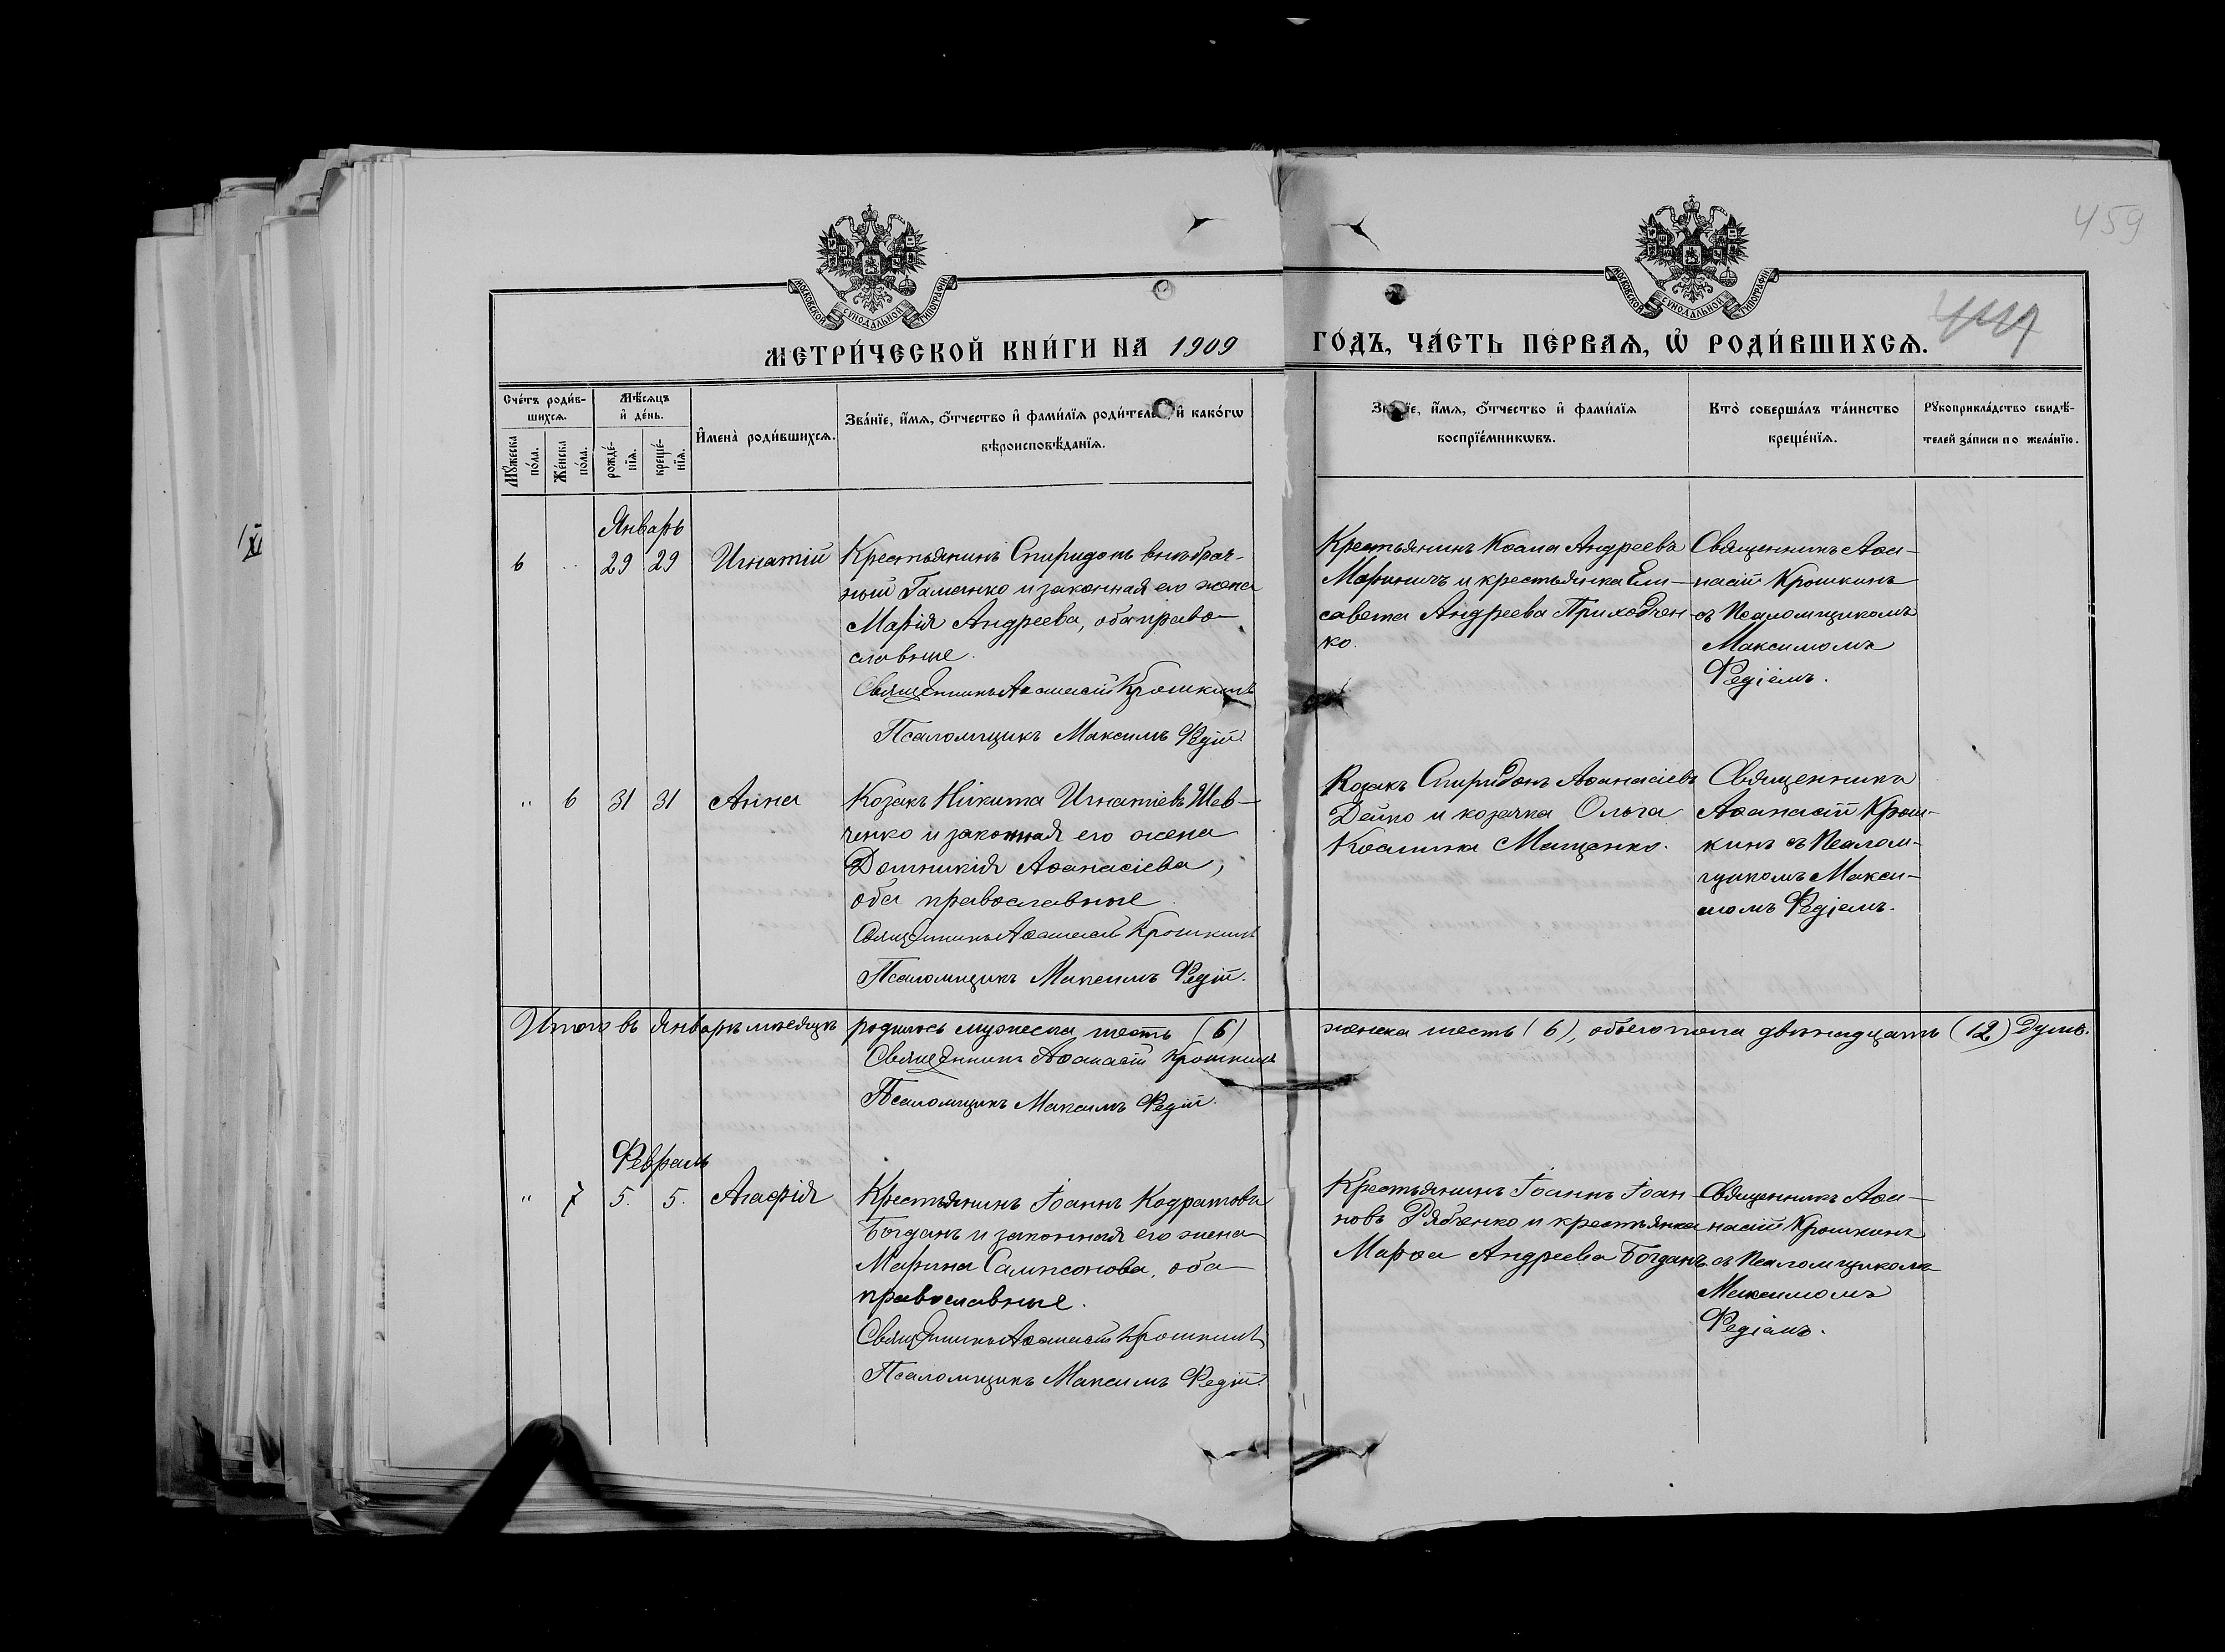 459
МОСКОВСКОЙ СѴНОДАЛЬНОЙ ТИПОГРАФІИ
МОСКОВСКОЙ СѴНОДАЛЬНОЙ ТИПОГРАФІИ
МЕТРИ́ЧЕСКОЙ КНИ́ГИ НА 1909 ГО́ДЪ, ЧА́СТЬ ПЕ́РВАѦ, Ѡ҆ РОДИ́ВШИХСѦ.
Сче́тъ роди́в-
шихсѧ.
Мꙋ́жеска по́ла.
Же́нска по́ла.
Мѣ́сѧцъ
и҆ де́нь.
рожде́-
нїѧ.
креще́-
нїѧ.
И҆мена̀ роди́вшихсѧ.
Зва́нїе, и҆́мѧ, ѻ҆́тчество и҆ фами́лїѧ роди́тель и҆ како́гѡ
вѣроисповѣ́данїѧ.
и҆́мѧ, ѻ҆́тчество и҆ фами́лїѧ
воспрїе́мникѡвъ.
Кто̀ соверша́лъ та́инство
креще́нїѧ.
Рꙋкоприкла́дство свидѣ́-
телей за́писи по жела́нїю.
Январь
6 .. 29 29 Игнатій
Крестьянинъ Спиридонъ внѣбрач-
ный Гаменко и законная его жена
Марія Андреева, оба право-
славные.
Священникъ Аѳанасій Крошкинъ
Псаломщикъ Максимъ Редій.
Крестьянинъ Косма Андреевъ
Мариничъ и крестьянка Ели-
савета Андреева Приходчен-
ко.
Священникъ Аѳа-
насій Крошкинъ
съ Псаломщикомъ
Максимомъ
Редіемъ.
" 6 31 31 Анна
Козакъ Никита Игнатіевъ Шев-
ченко и законная его жена
Домникія Аѳанасіева,
оба православные.
Священникъ Аѳанасій Крошкинъ
Псаломщикъ Максимъ Редій.
Козакъ Спиридонъ Аѳанасіевъ
Дейко и козачка Ольга
Космина Мащенко.
Священникъ
Аѳанасій Крош-
кинъ съ Псалом-
щикомъ Макси-
момъ Редіемъ.
Итого въ Январѣ мѣсяцѣ родилось мужеска шесть (6) женска шесть (6), обоего пола двѣнадцать (12) Душъ.
Священникъ Аѳанасій Крошкинъ
Псаломщикъ Максимъ Редій.
Февраль
" 7 5. 5. Агафія
Крестьянинъ Іоаннъ Кодратовъ
Богданъ и законная его жена
Марина Сампсонова, оба
православные.
Священникъ Аѳанасій Крошкинъ
Псаломщикъ Максимъ Редій.
Крестьянинъ Іоаннъ Іоан-
новъ Рябченко и крестьянка
Марѳа Андреева Богданъ.
Священникъ Аѳа-
насій Крошкинъ
съ Псаломщикомъ
Максимомъ
Редіемъ.